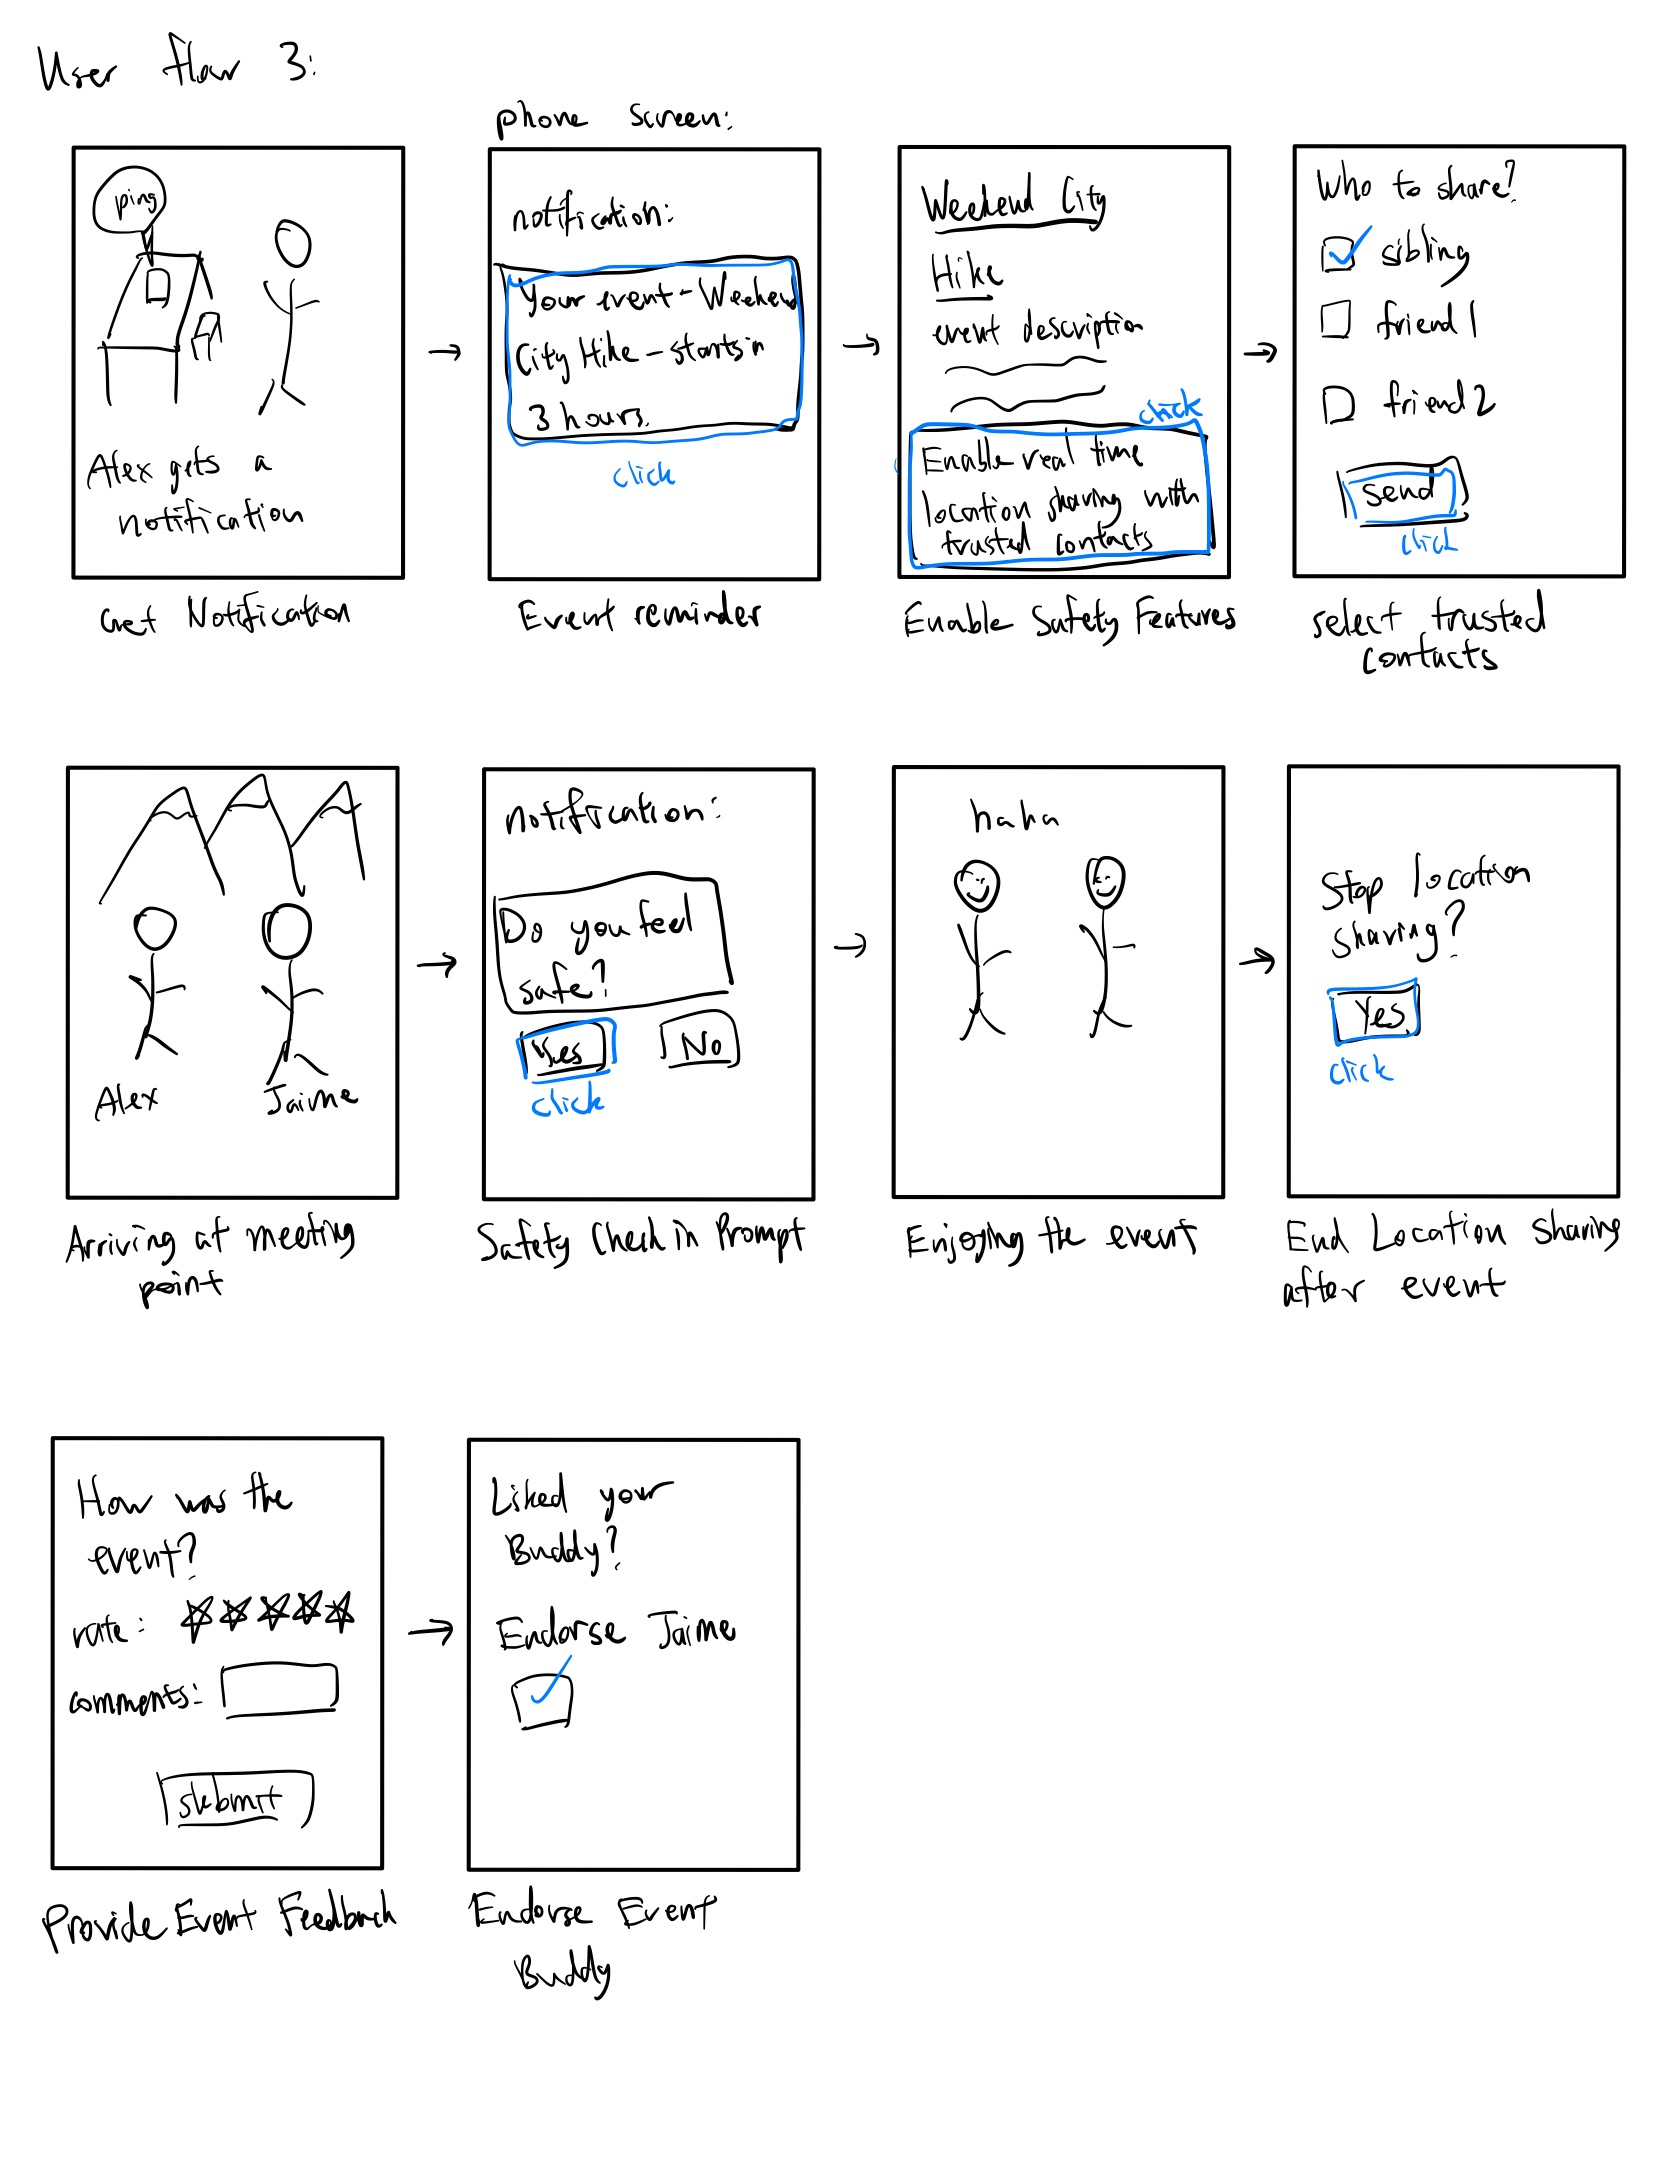 User flow 3:
ping
Alex gets a
notification
Get Notification
phone screen:
notification:
Your event - Weekend
City Hike - starts in
3 hours.
click
Event reminder
Weekend City
Hike
event description
click
Enable real time
location sharing with
trusted contacts
Enable Safety Features
Who to share?
sibling
friend 1
friend 2
send
click
select trusted
contacts
Alex
Jaime
Arriving at meeting
point
notification:
Do you feel
safe?
Yes
No
click
Safety Check in Prompt
haha
Enjoying the event
Stop location
sharing?
Yes
click
End Location Sharing
after event
How was the
event?
rate:
comments:
submit
Provide Event Feedback
Liked your
Buddy?
Endorse Jaime
Endorse Event
Buddy